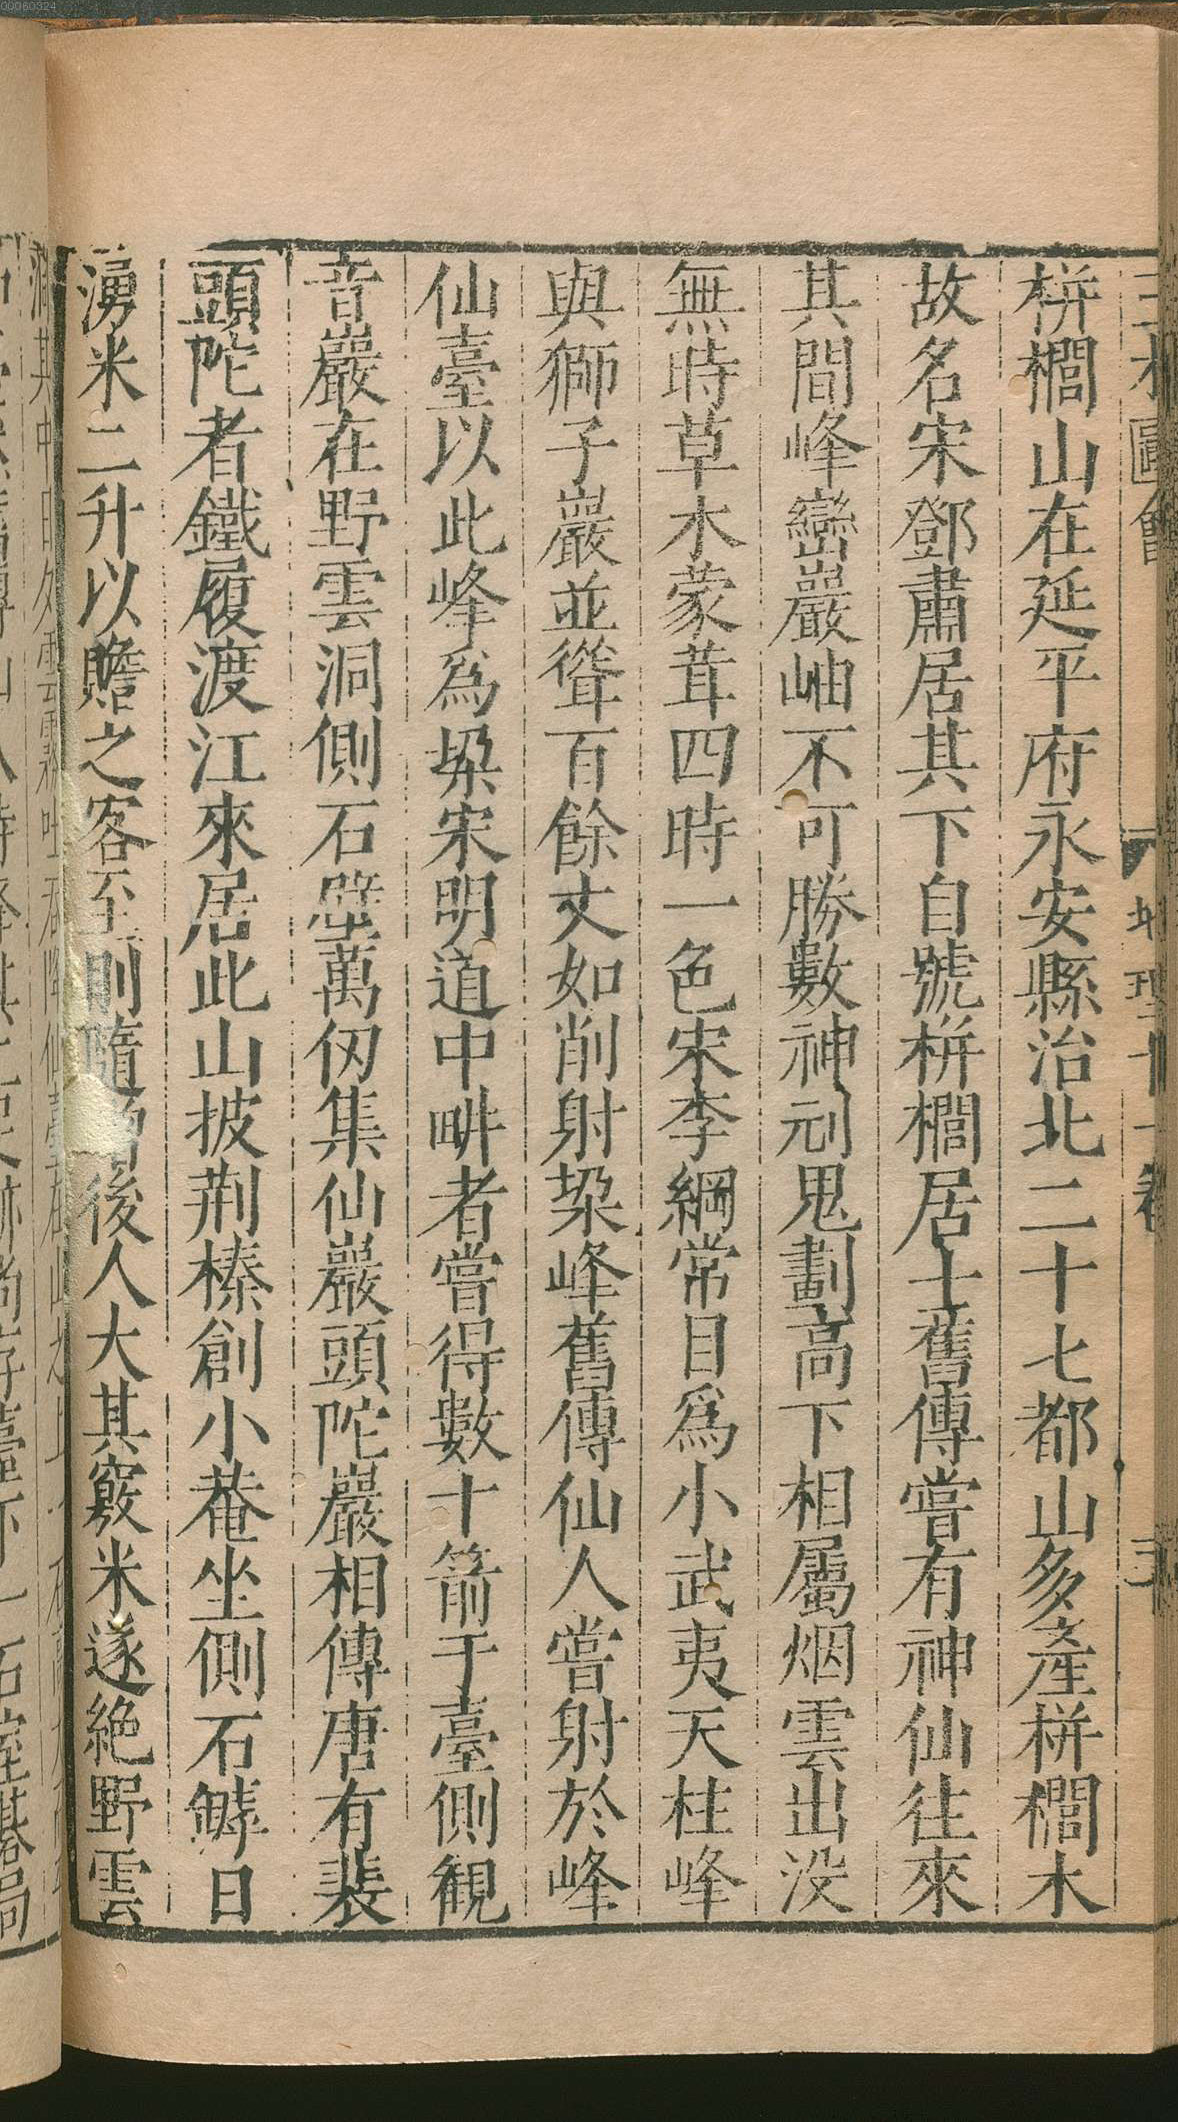 栟櫚山在延平府永安縣治北二十七都山多產栟櫚木
故名宋鄧肅居其下自號栟櫚居士舊傳嘗有神仙往來
其間峰巒巖岫不可勝數神刓鬼劃高下相屬烟雲出没
無時草木蒙茸四時一色宋李綱常目爲小武夷天柱峰
與獅子巖並聳百餘丈如削射垜峰舊傳仙人嘗射於峰
仙臺以此峰爲垜宋明道中畊者嘗得數十箭于臺側観
音巖在野雲洞側石壁萬仭集仙巖頭陀巖相傳唐有裴
頭陀者鐵履渡江來居此山披荆榛創小菴坐側石罅日
湧米二升以贍之客至則隨後人大其竅米遂絶野雲
三才圖會
地理十一卷
00060324